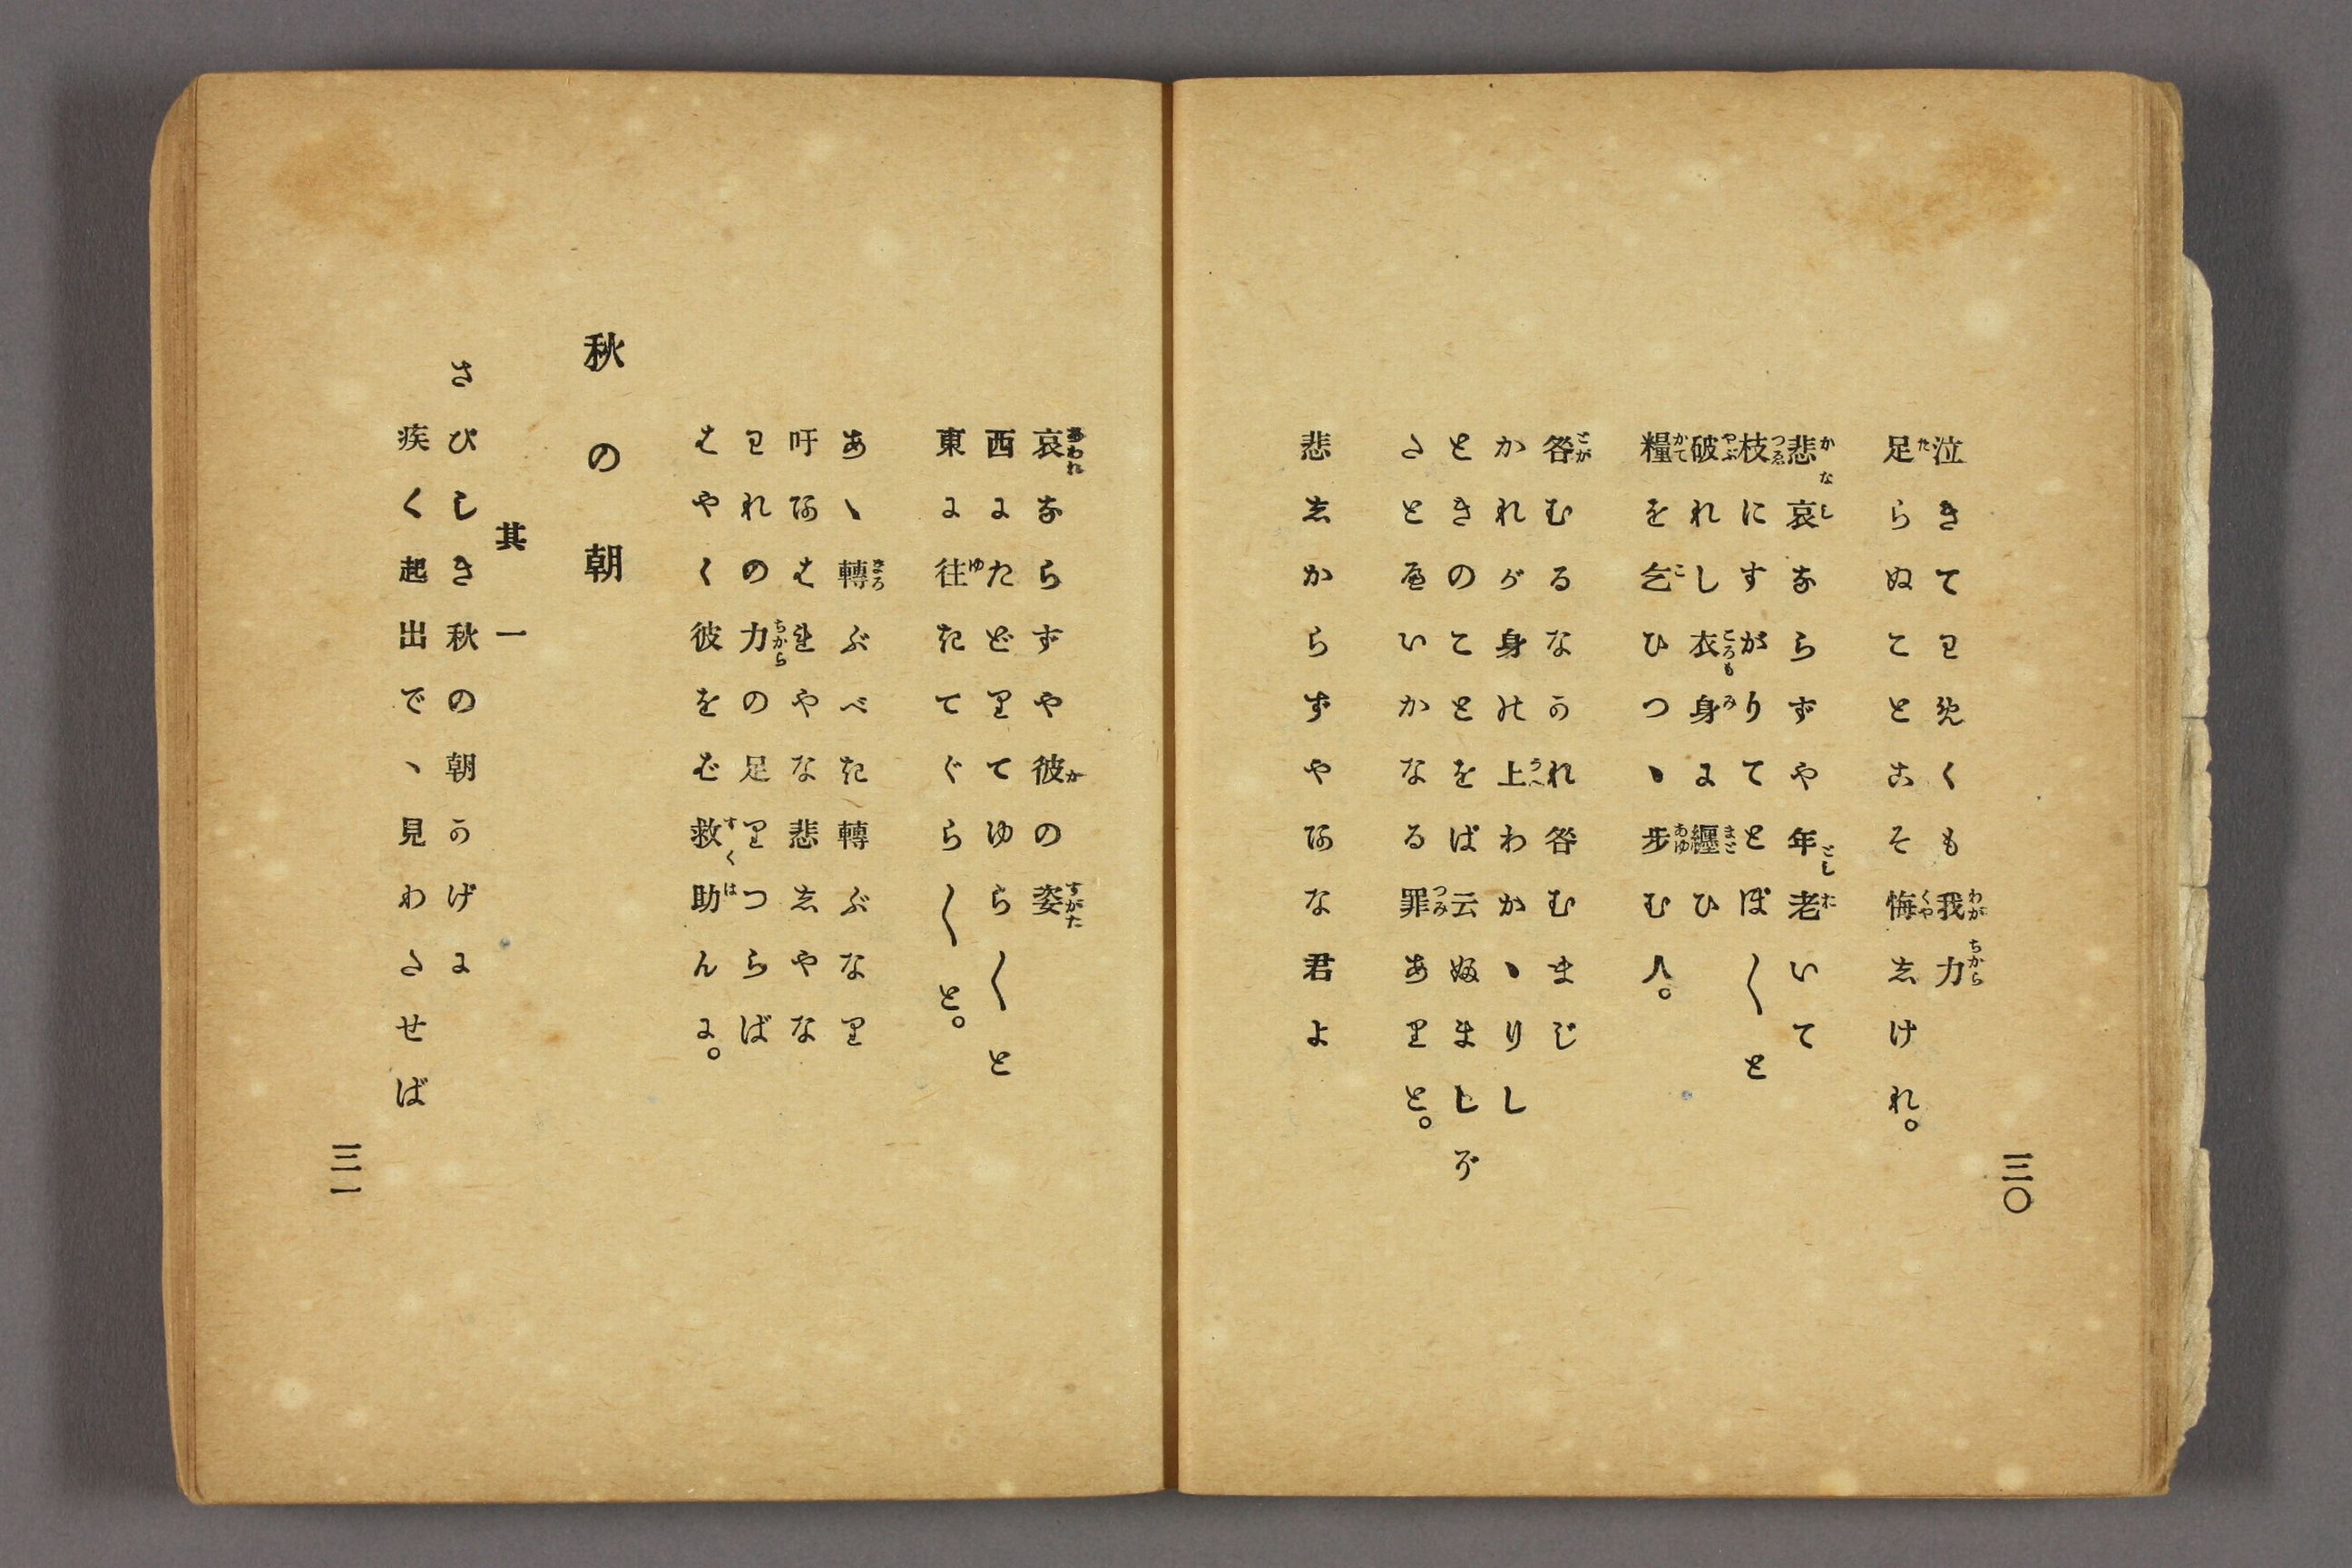 三〇
泣きてわめくも我力
足らぬことこそ悔しけれ。
悲哀ならずや年老いて
枝にすがりてとぼ〳〵と
破れし衣身に纒ひ
糧を乞ひつゝ歩む人。
咎むるなかれ咎むまじ
かれが身の上わかゝりし
ときのことをば云ふましが
たとへいかなる罪ありと。
悲しからずやあな君よ
哀ならずや彼の姿
西にたどりてゆら〳〵と
東に往きてぐら〳〵と。
あゝ轉ぶべき轉ぶなり
吁あはれやな悲しやな
われの力の足りつらば
はやく彼をば救助んに。
秋の朝
其一
さびしき秋の朝かげに
疾く起出でゝ見わたせば
三一